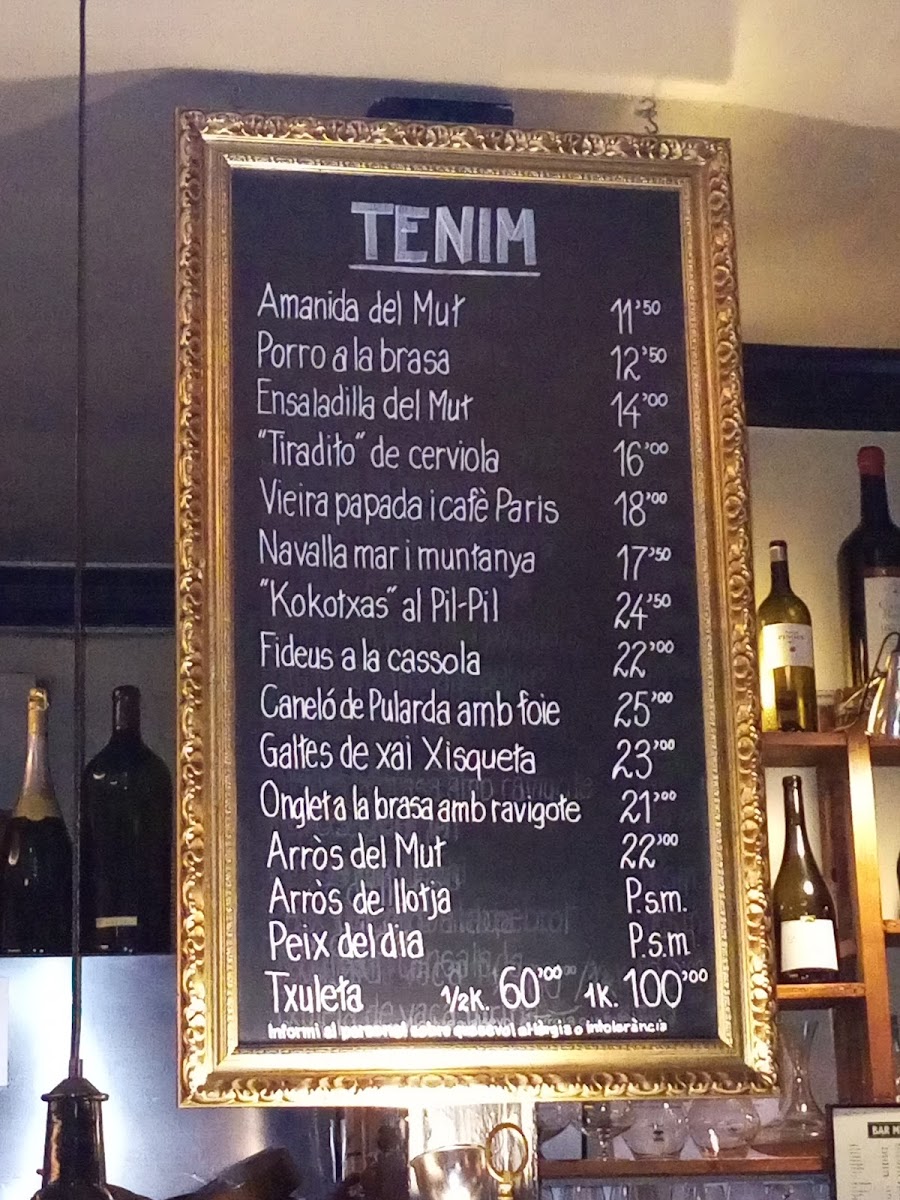 TENIM
Amanida del Mut 11'50
Porro a la brasa 12'50
Ensaladilla del Mut 14'00
"Tiradito" de cerviola 16'00
Vieira papada i cafè Paris 18'00
Navalla mar i muntanya 17'50
"Kokotxas" al Pil-Pil 24'50
Fideus a la cassola 22'00
Caneló de Pularda amb foie 25'00
Galtes de xai Xisqueta 23'00
Onglet a la brasa amb ravigote 21'00
Arròs del Mut 22'00
Arròs de llotja P.s.m.
Peix del dia P.s.m
Txuleta 1/2K. 60'00 1K. 100'00
Informi al personal sobre qualsevol al·lèrgia o intolerància
BAR M